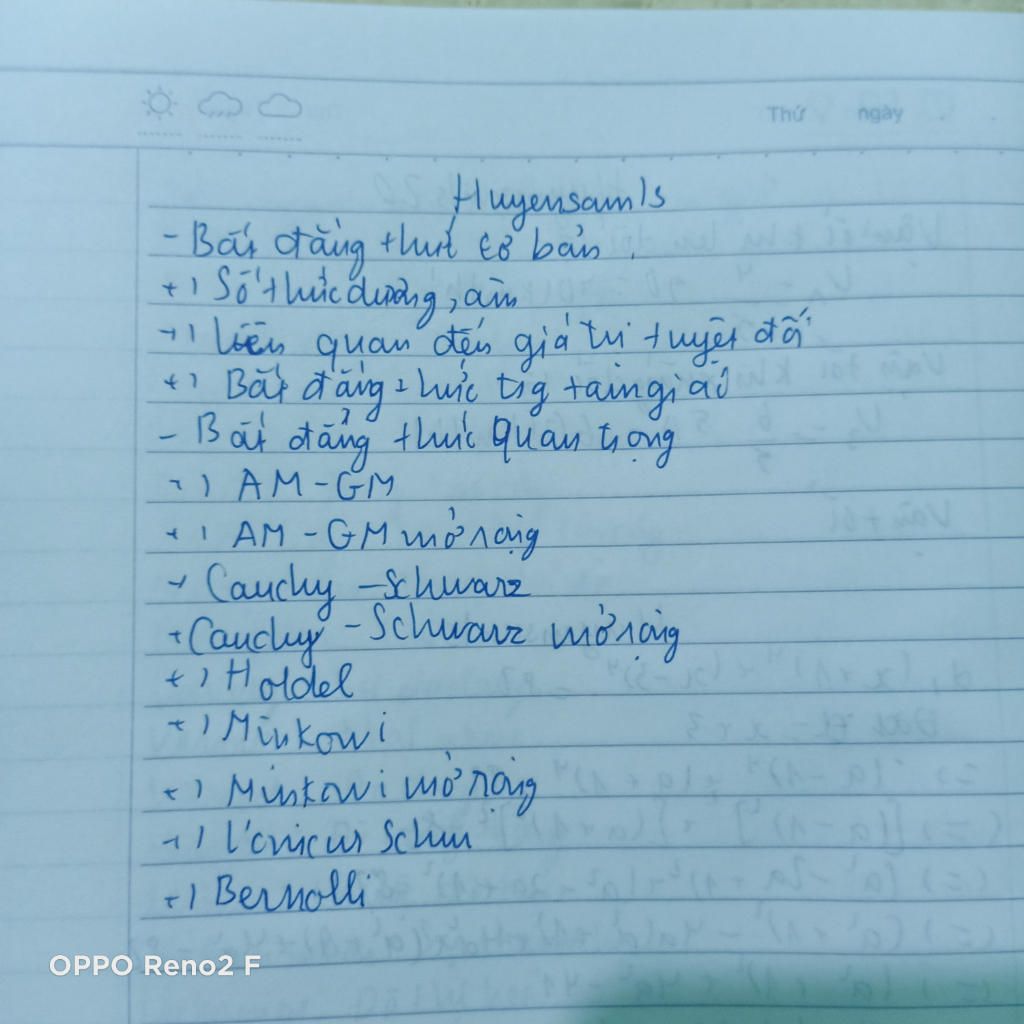 Thứ ngày
Huyensamls
- Bất đẳng thức cơ bản.
+) Số thực dương, âm
+) Liên quan đến giá trị tuyệt đối
+) Bất đẳng thức trg tam giác
- Bất đẳng thức quan trọng
+) AM-GM
+) AM-GM mở rộng
+ Cauchy-Schwarz
+ Cauchy-Schwarz mở rộng
+) Holdel
+) Minkowi
+) Minkowi mở rộng
+)
+) Bernolli
OPPO Reno2 F